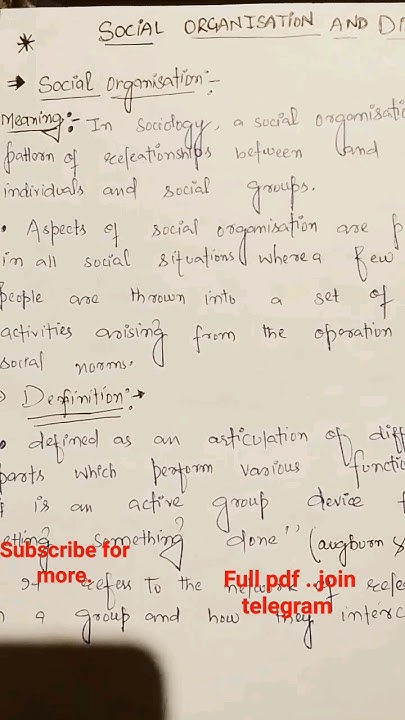 * SOCIAL ORGANISATION AND DI
→ Social organisation:-
Meaning:- In Sociology, a social organisatio
pattern of relationships between and
individuals and social groups.
• Aspects of social organisation are p
in all social situations where a few
people are thrown into a set of
activities arising from the operation
social norms.
Definition:→
• defined as an articulation of diff
parts which perform various functio
is an active group device f
etting something done" (augburn &
It refers to the network of rele
a group and how they interc
Subscribe for
more.
Full pdf ..join
telegram